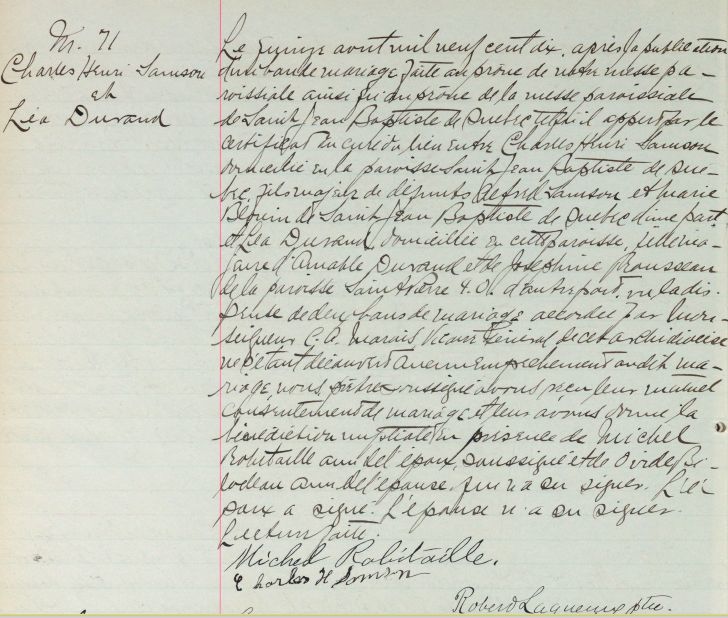 M. 71
Charles Henri Samson
et
Léa Durand
Le quinze aout mil neuf cent dix, après la publication
d'un ban de mariage faite au prône de notre messe pa-
roissiale ainsi qu'au prône de la messe paroissiale
de Saint Jean Baptiste de Quebec tel qu'il appert par le
certificat du curé du lieu entre Charles Henri Samson
domicilié en la paroisse Saint Jean Baptiste de Qué-
bec, fils majeur de défunts Alfred Samson et Marie
Blouin de Saint Jean Baptiste de Quebec d'une part
et Léa Durand, domiciliée en cette paroisse, fille ma-
jeure d'Amable Durand et de Joséphine Rousseau
de la paroisse Saint Pierre I. O. d'autre part, vu la dis-
pense de deux bans de mariage accordée par Mon-
seigneur C. A. Marois, Vicaire Général de cet archidiocèse
ne s'étant découvert aucun empêchement au dit ma-
riage nous, prêtre soussigné avons reçu leur mutuel
consentement de mariage et leur avons donné la
bénédiction nuptiale en présence de Michel
Robitaille ami de l'époux, soussigné et de Ovide Bi-
lodeau ami de l'épouse, qui n'a su signer. L'é-
poux a signé. L'épouse n'a su signer.
Lecture faite.
Michel Robitaille.
Charles H Samson
Robert Lagueux ptre.